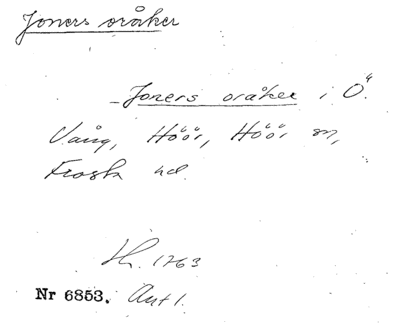 Joners oråker
Joners oråker i Ö.
Vång, Höör, Höör sn,
Frosta hd
1763
Nr 6853.